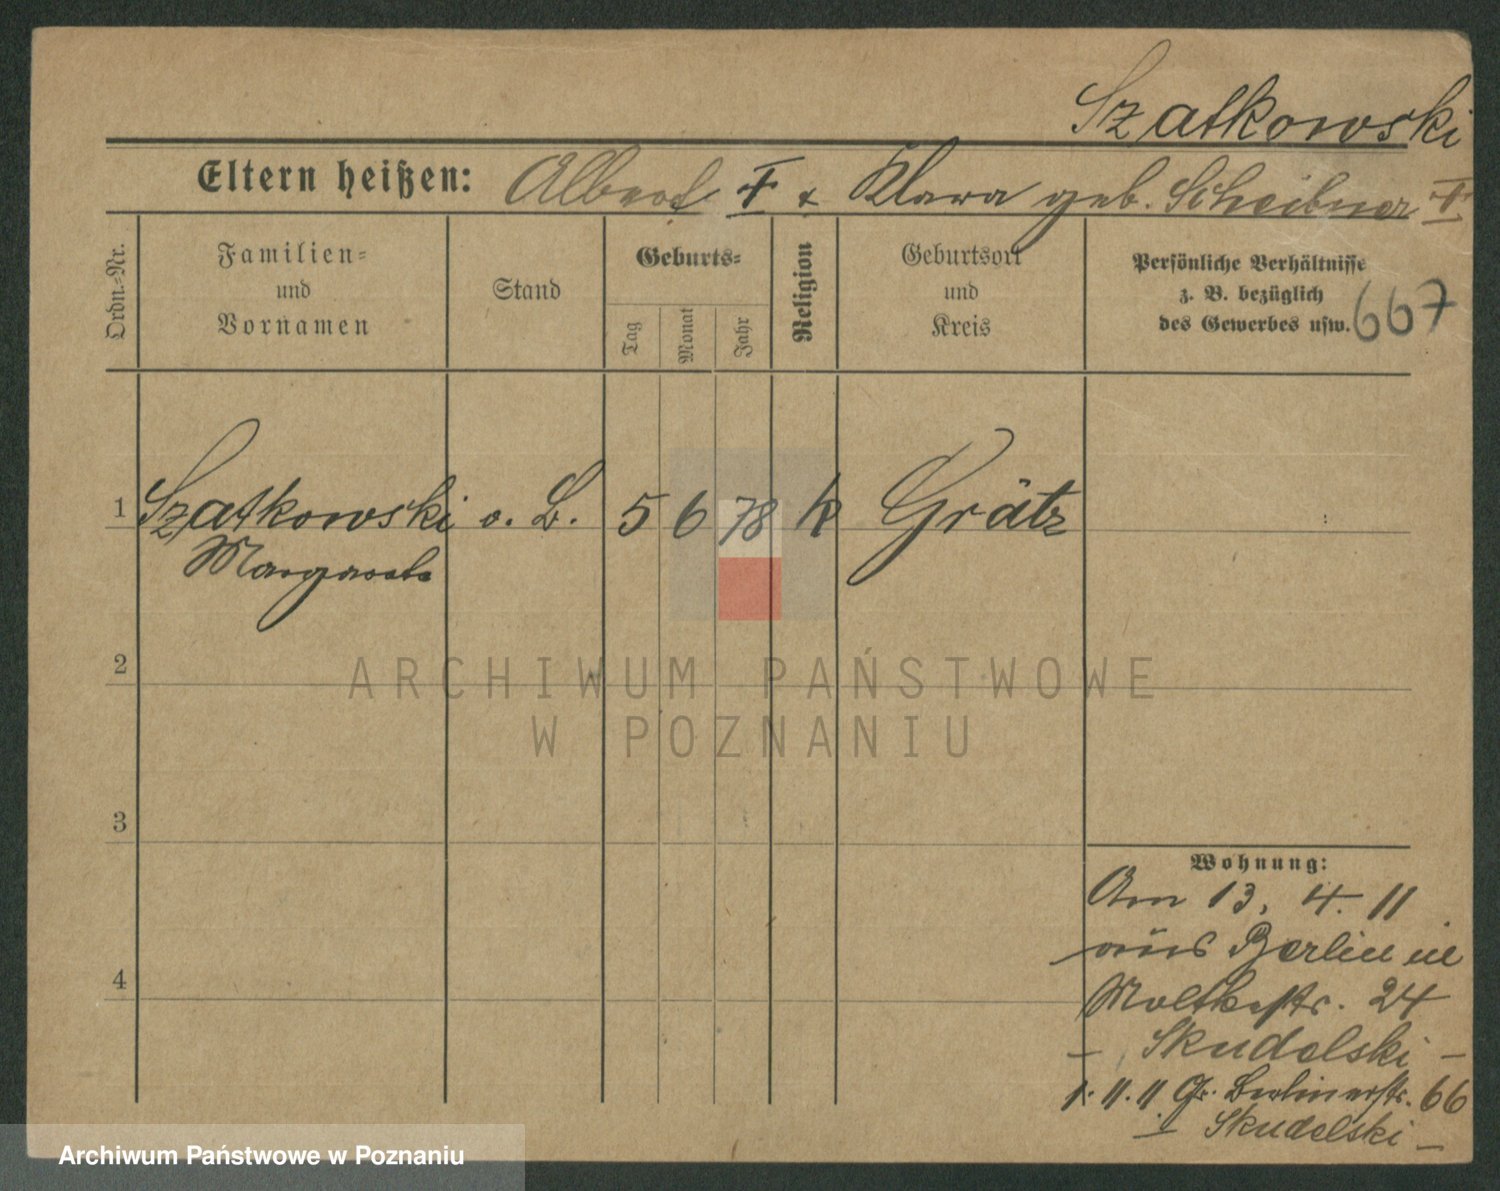 Szatkowski
Eltern heißen: Albert † & Klara geb. Scheibner †
Ordn.-Nr.
Familien-
und
Vornamen
Stand
Geburts-
Tag
Monat
Jahr
Religion
Geburtsort
und
Kreis
Persönliche Verhältnisse
z. B. bezüglich
des Gewerbes usw.
667
1 Szatkowski o. B. 5 6 78 k Grätz
Margarete
2
ARCHIWUM PAŃSTWOWE
W POZNANIU
3
Wohnung:
Am 13. 4. 11
aus Berlin in
4
Moltkestr. 24
- Skudelski -
1. 11. 11 Gr. Berlinerstr. 66
- Skudelski -
Archiwum Państwowe w Poznaniu